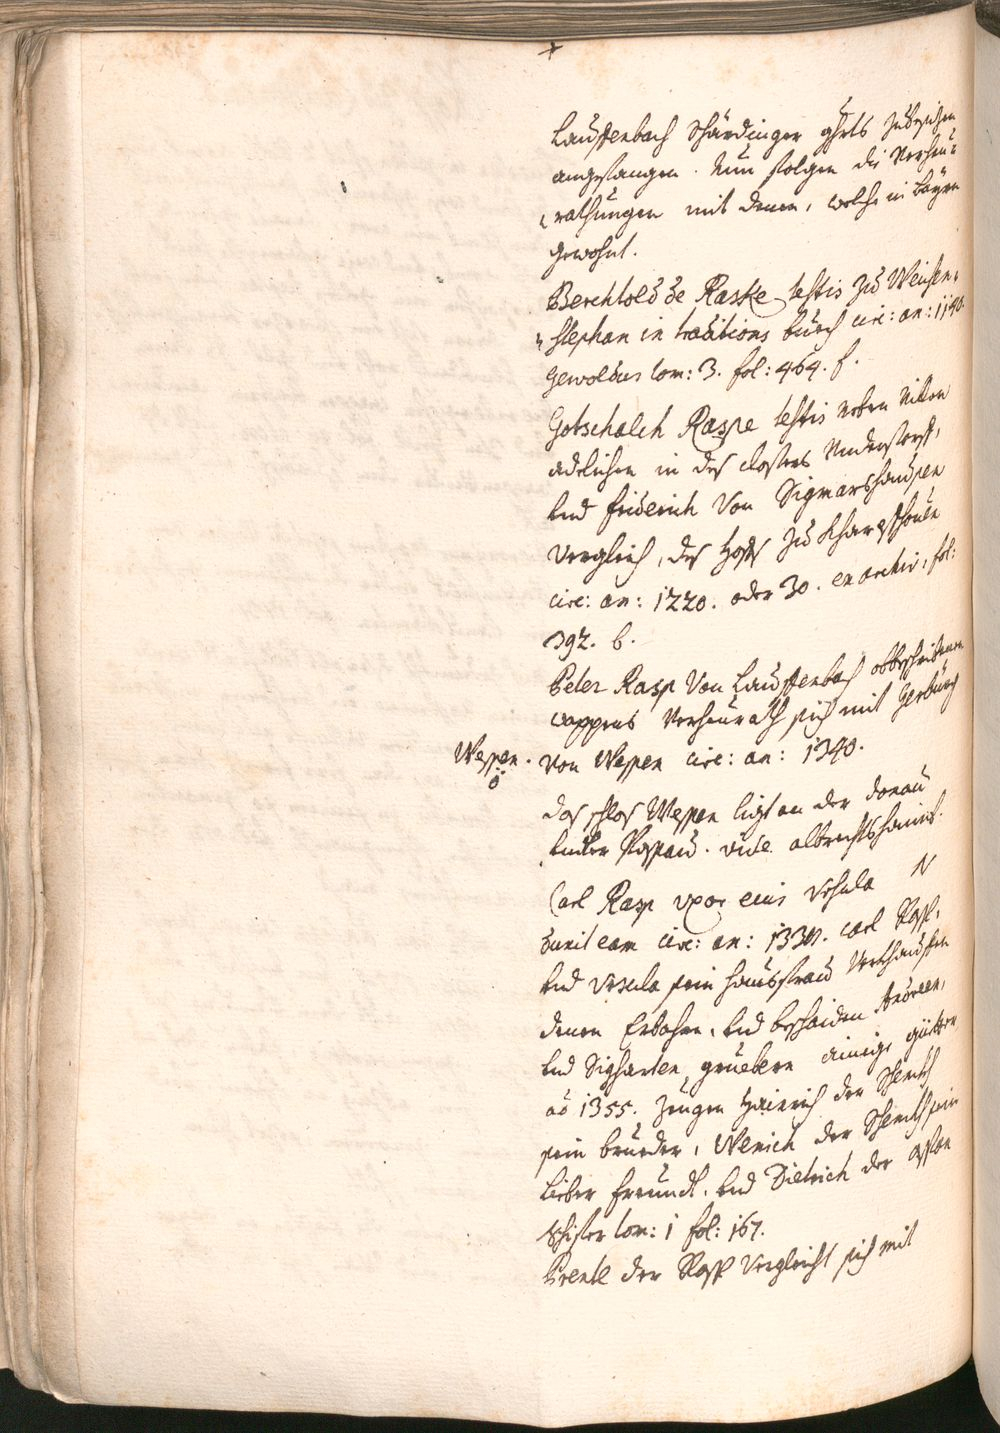 Lauffenbach Schärdinger ghrts zubesizen
angefangen. Nun folgen die Verheu=
rathungen mit denen, welche in Bayrn
gewohnt.
Berchtold de Raske testis zu Weihen=
stephan in traditions buech circ: an: 1140.
Gewoldus tom: 3. fol: 464. f.
Gotschalch Raspe testis neben Vilten
adelichen in des closters Understorff,
und friderich von Sigmarshausen
Vergleich, des Hofs zu
circ: an: 1220. oder 30. ex archiv: fol:
392. b.
Peter Rasp von Lauffenbach obbeschribenen
wappens Verheurath sich mit Gerbürg
Wessen.
von Wessen circ: an: 1340.
das schlos Wessen ligt an der Donau
unter Passau. vide albrechtshaimb.
Carl Rasp uxor eius Ursula N
duxit eam circ: an: 1330. carl Rasp,
und Ursula sein hausfrau Verkhauffen
denen Erbahrn, und beschaiden Andreen,
und Sigharten, gruebern ainige güetter
ao 1355. Zeugen Hainrich der Schenkh
sein brueder, Wernich der Schenkh sein
lieber freundt. und Dietrich der
tom: 1 fol: 167.
Prentl der Rasp Vergleicht sich mit